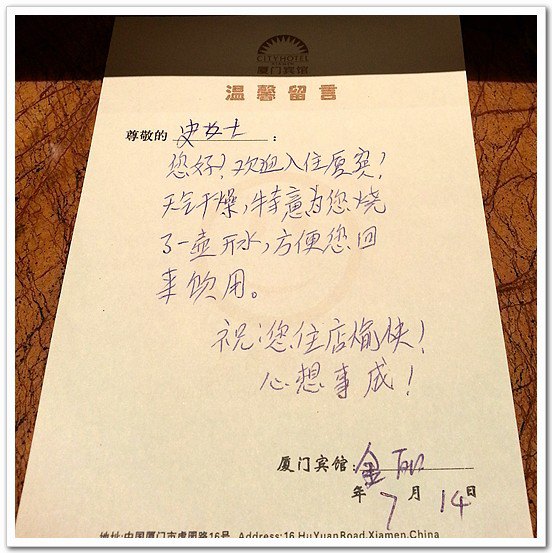 CITYHOTEL
XIAMEN
厦门宾馆
温馨留言
尊敬的 史女士 :
您好!欢迎入住厦宾!
天气干燥,特意为您烧
了一壶开水,方便您回
来饮用。
祝:您住店愉快!
心想事成!
厦门宾馆:金
年 7 月 14日
地址:中国厦门市虎园路16号 Address:16 HuYuanRoad,Xiamen,China